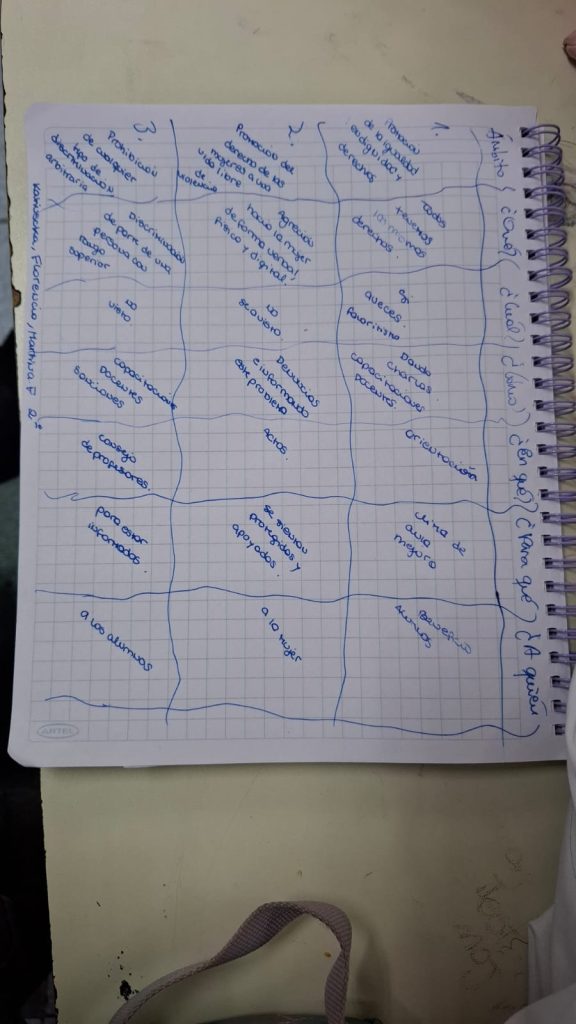 Ámbito
¿Qué?
¿Cuál?
¿Cómo?
¿En qué?
¿Para qué?
¿A quién
1.
Promoción
de la igualdad
en dignidad y
derechos
Todos
tenemos
los mismos
derechos.
aveces.
favoritismo
Dando
charlas.
capacitaciones
Docentes.
Orientación
clima de
aula
mejora
alumnos
2.
Promoción del
derecho de las
mujeres a una
vida libre
de
violencia
Agresión
hacia la mujer
de forma verbal,
física y digital.
no
se a visto.
Denuncias
e informando
este problema
actos.
se sientan
protegidas y
apoyadas.
a la mujer
3.
Prohibición
de cualquier
tipo de
discriminación
arbitraria
Discriminación
de parte de una
persona con
rango
superior
no
visto
capacitaciones
Docentes
sanciones
consejo
de profesores.
para estar
informados.
a los alumnos
Florencia, Martina P
ARTEL